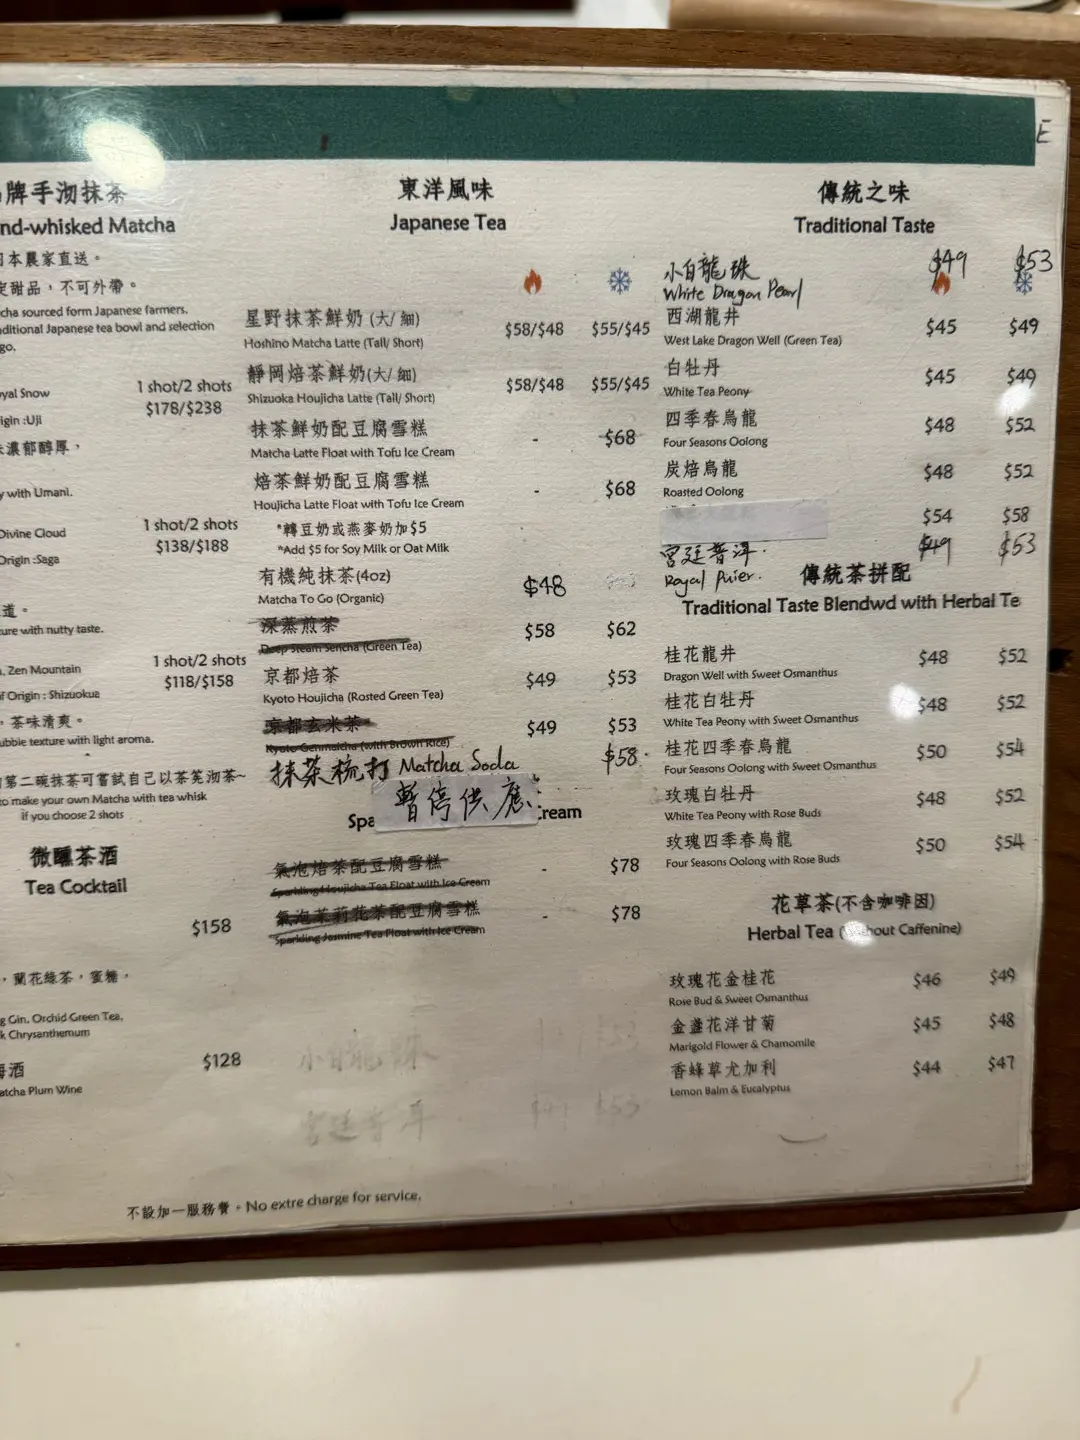 E
牌手沏抹茶
nd-whisked Matcha
本農家直送。
甜品，不可外帶。
cha sourced form Japanese farmers.
ditional Japanese tea bowl and selection
go.
1 shot/2 shots
yal Snow
$178/$238
igin :Uji
濃郁醇厚，
y with Umani.
1 shot/2 shots
Divine Cloud
$138/$188
Origin :Saga
道。
ure with nutty taste.
1 shot/2 shots
. Zen Mountain
$118/$158
f Origin : Shizuokua
，茶味清爽。
ubble texture with light aroma.
第二碗抹茶可嘗試自己以茶筅沏茶~
to make your own Matcha with tea whisk
if you choose 2 shots
微醺茶酒
Tea Cocktail
$158
，蘭花綠茶，蜜糖，
g Gin, Orchid Green Tea,
k Chrysanthemum
酒 $128
atcha Plum Wine
東洋風味
Japanese Tea
星野抹茶鮮奶 (大/ 細) $58/$48 $55/$45
Hoshino Matcha Latte (Tall/ Short)
靜岡焙茶鮮奶(大/ 細) $58/$48 $55/$45
Shizuoka Houjicha Latte (Tall/ Short)
抹茶鮮奶配豆腐雪糕 - $68
Matcha Latte Float with Tofu Ice Cream
焙茶鮮奶配豆腐雪糕 - $68
Houjicha Latte Float with Tofu Ice Cream
*轉豆奶或燕麥奶加$5
*Add $5 for Soy Milk or Oat Milk
有機純抹茶(4oz) $48
Matcha To Go (Organic)
深蒸煎茶 $58 $62
Deep Steam Sencha (Green Tea)
京都焙茶 $49 $53
Kyoto Houjicha (Rosted Green Tea)
京都玄米茶 $49 $53
Kyoto Genmaicha (with Brown Rice)
抹茶梳打 Matcha Soda $58.
暫停供應
Spa ream
氣泡焙茶配豆腐雪糕 - $78
Sparkling Houjicha Tea Float with Ice Cream
氣泡茉莉花茶配豆腐雪糕 - $78
Sparkling Jasmine Tea Float with Ice Cream
小白龍珠 $53
宮廷普洱 $53
不設加一服務費。No extre charge for service.
傳統之味
Traditional Taste
小白龍珠 $49 $53
White Dragon Pearl
西湖龍井 $45 $49
West Lake Dragon Well (Green Tea)
白牡丹 $45 $49
White Tea Peony
四季春烏龍 $48 $52
Four Seasons Oolong
炭焙烏龍 $48 $52
Roasted Oolong
$54 $58
宮廷普洱. $49 $53
Royal Puier.
傳統茶拼配
Traditional Taste Blendwd with Herbal Te
桂花龍井 $48 $52
Dragon Well with Sweet Osmanthus
桂花白牡丹 $48 $52
White Tea Peony with Sweet Osmanthus
桂花四季春烏龍 $50 $54
Four Seasons Oolong with Sweet Osmanthus
玫瑰白牡丹 $48 $52
White Tea Peony with Rose Buds
玫瑰四季春烏龍 $50 $54
Four Seasons Oolong with Rose Buds
花草茶(不含咖啡因)
Herbal Tea ( hout Caffenine)
玫瑰花金桂花 $46 $49
Rose Bud & Sweet Osmanthus
金盞花洋甘菊 $45 $48
Marigold Flower & Chamomile
香蜂草尤加利 $44 $47
Lemon Balm & Eucalyptus